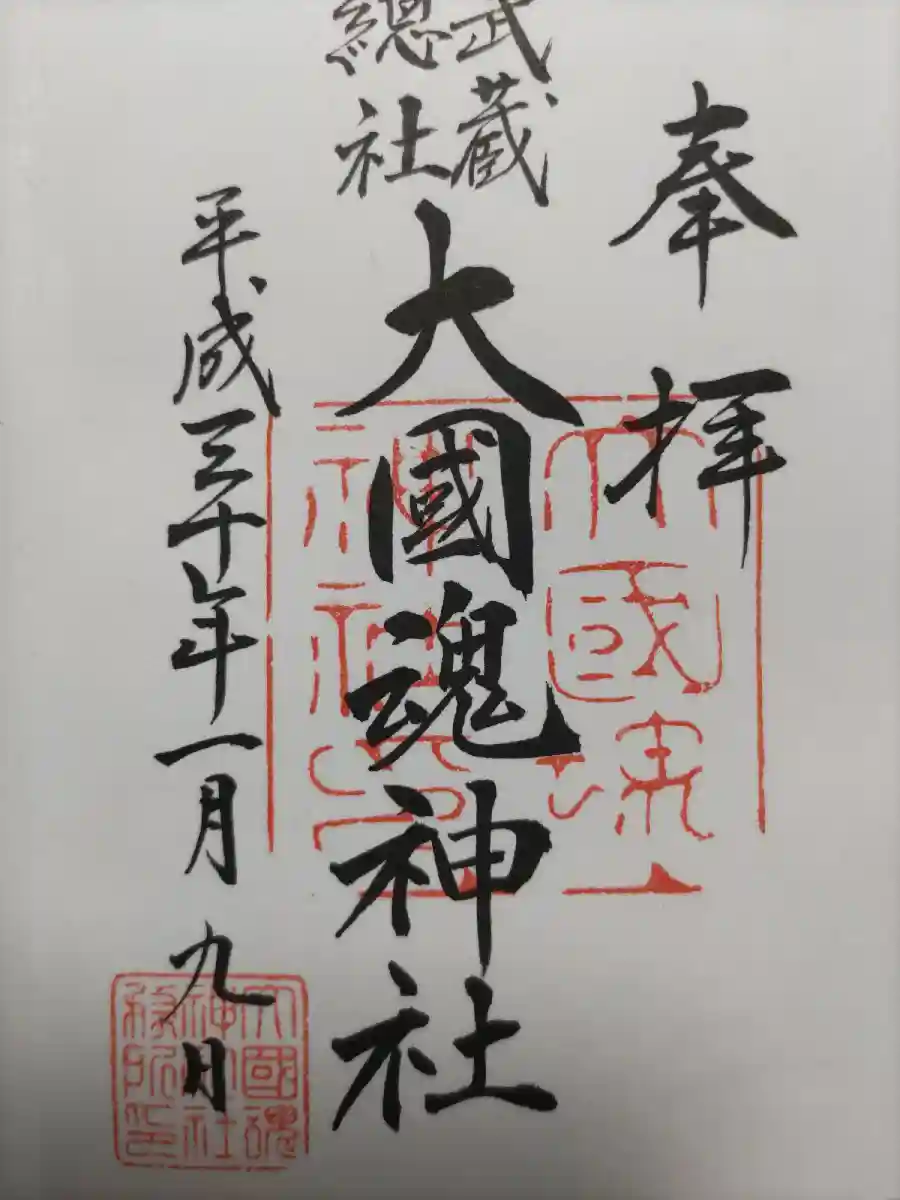 奉拝
武蔵
總社
大國魂神社
平成三十年一月九日
大國魂
神社
大國魂
神社
務所印